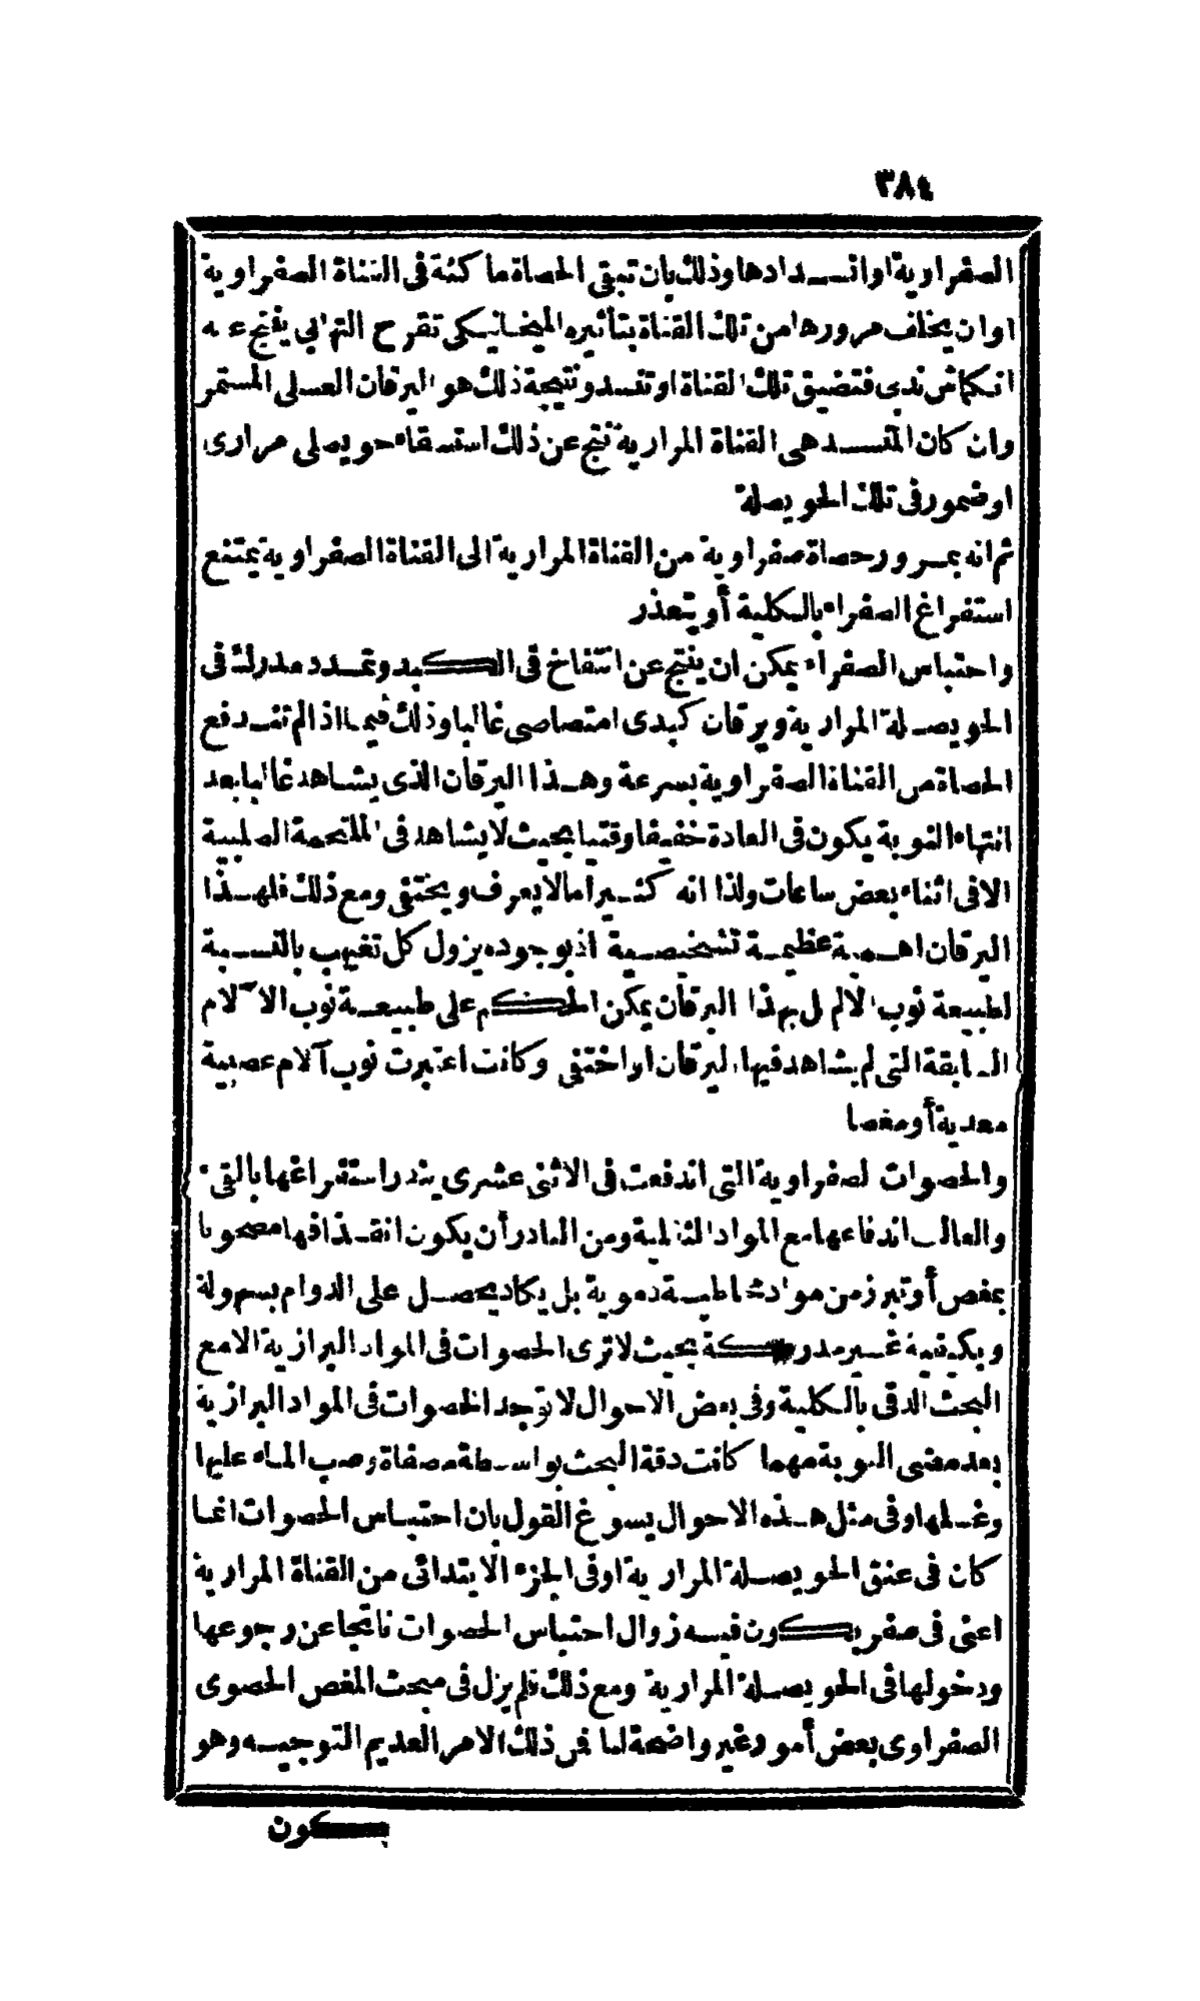 ٣٨٤
الصفراوية او انسدادها وذلك بان تبقى الحصاة ماكثة فى القناة الصفراوية
او ان يخلف مرورها من تلك القناة بتأثيره الميخانيكى تقرح التهابى ينتج عنه
انكماش ندبى فتضيق تلك القناة او تنسد ونتيجة ذلك هو اليرقان العسلى المستمر
وان كان المنسد هى القناة المرارية نتج عن ذلك استسقاء حويصلى مرارى
او ضمور فى تلك الحويصلة
ثم انه بمرور حصاة صفراوية من القناة المرارية الى القناة الصفراوية يمتنع
استفراغ الصفراء بالكلية أو يتعذر
واحتباس الصفراء يمكن ان ينتج عن انتفاخ فى الكبد وتمدد مدرك فى
الحويصلة المرارية ويرقان كبدى امتصاصى غالبا وذلك فيما اذا لم تندفع
الحصاة من القناة الصفراوية بسرعة وهذا اليرقان الذى يشاهد غالبا بعد
انتهاء النوبة يكون فى العادة خفيفا وقتيا بحيث لا يشاهد فى الملتحمة الصلبية
الا فى اثناء بعض ساعات ولذا انه كثيرا ما لا يعرف ويختفى ومع ذلك فلهذا
اليرقان اهمية عظيمة تشخيصية اذ بوجوده يزول كل تغيهب بالنسبة
لطبيعة نوب الالم بل بهذا اليرقان يمكن الحكم على طبيعة نوب الآلام
السابقة التى لم يشاهد فيها اليرقان او اختفى وكانت اعتبرت نوب آلام عصبية
معدية أو مغصا
والحصوات الصفراوية التى اندفعت فى الاثنى عشرى يندر استفراغها بالقىء
والغالب اندفاعها مع المواد الثفلية ومن النادر أن يكون انقذافها مصحوبا
بمغص أو تبرز من مواد مخاطية دموية بل يكاد يحصل على الدوام بسهولة
وبكيفية غير مدركة بحيث لا ترى الحصوات فى المواد البرازية الا مع
البحث الدقى بالكلية وفى بعض الاحوال لا توجد الحصوات فى المواد البرازية
بعد مضى النوبة مهما كانت دقة البحث بواسطة مصفاة وصب الماء عليها
وغسلها وفى مثل هذه الاحوال يسوغ القول بان احتباس الحصوات انما
كان فى عنق الحويصلة المرارية او فى الجزء الابتدائى من القناة المرارية
اعنى فى صقر يكون فيه زوال احتباس الحصوات ناتجا عن رجوعها
ودخولها فى الحويصلة المرارية ومع ذلك فلم يزل فى مبحث المغص الحصوى
الصفراوى بعض أمور غير واضحة لنا فمن ذلك الامر العديم التوجيه وهو
يكون